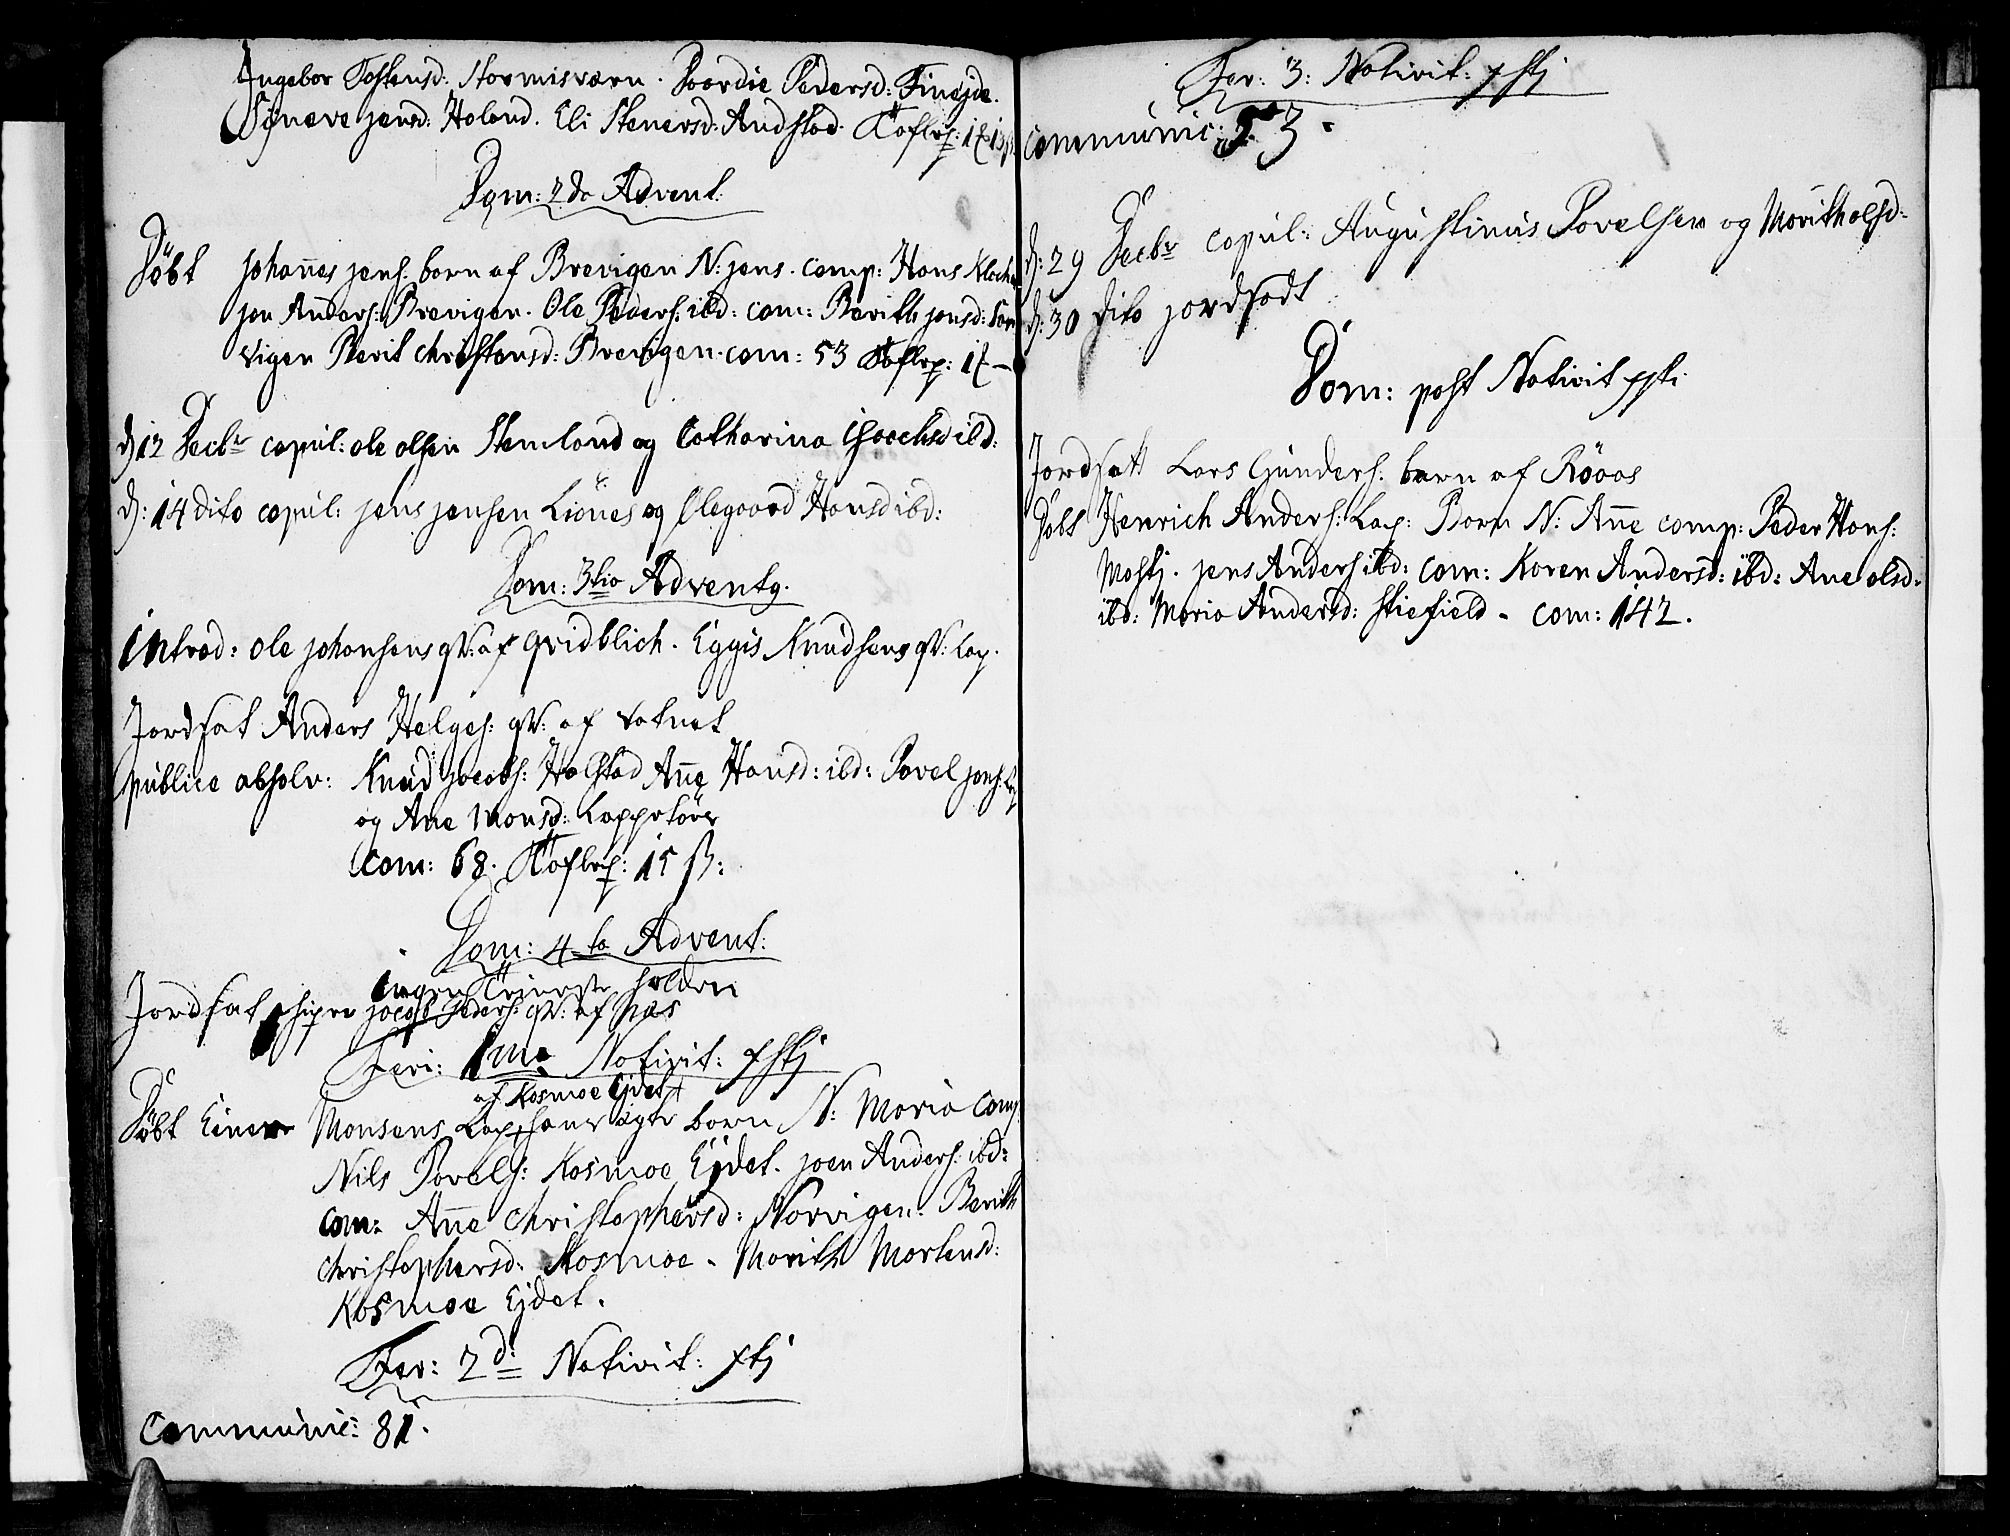 Ingebor Tostensd: Stormisværn. Baardie Pedersd: Finejde.
Synneve jensd: Holand. Eli Stenersd: Andstad. Taflep: 1
Dom: 2do Advent:
Døbt Johañes jens: barn af Brevigen N: jens. comp: Hans Klocker
jon Anders: Brevigen. Ole Peders: ibd: com: Berith jensd:
vigen Berit Christensd: Brevigen. com: 53 Taflep: 1
d: 12 Decbr copul: ole olsen Stemland og Catharina Isachsd ibd:
d: 14 dito copul: jens jensen Liönes og Olegaard Hansd ibd:
Dom: 3tio Advents.
Introd: ole johansens qv: af qvidblich. Eggis Knudsens qv: Lap.
Jordsat Anders Helges: qv: af Vatnet
publice absolv: Knud jacobs: Halstad Añe Hansd: ibd: Povel jons: Lap
og Ane Monsd: Lappetöes
com: 68. Taflep: 15 ß:
Dom: 4to Advent:
ingen tienneste holden
Jordsat jacob Peders: qv: af næs
Feri: 1ma Nativit: xstj
af Kosmoe Ejdet
Døbt Einer Monsens Lap, hans ægte barn N: Maria Comp:
Nils Povels: Kosmoe Ejdet. joen Anders: ibd:
com: Añe Christophersd: Norvigen. Berith
Christophersd: Kosmoe. Marith Mortensd:
Kosmoe Ejdet.
Fer: 2d: Nativit: xstj
Communic: 81.
Fer: 3: Nativit: xstj
Communic: 53.
d: 29 Decbr copul: Augustinus Povelsen og Marith olsd:
d: 30 dito jordsadt
Dom: post Nativit xsti
Jordsatt Lars Gunders: barn af Röaas
Døbt Henrich Anders: Lap: Barn N: Añe comp: Peder Hans:
Mostj. jens Anders ibd: com: Karen Andersd: ibd: Ane olsd:
ibd: Maria Andersd: Stiefield. com: 142.